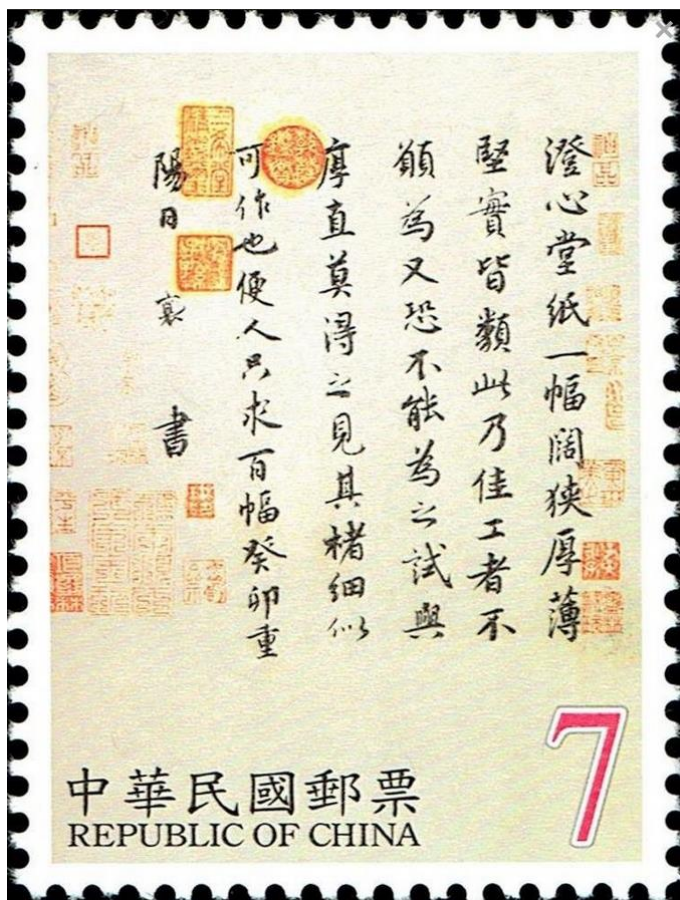 澄心堂紙一幅闊狹厚薄
堅實皆類此乃佳工者不
願為又恐不能為之試與
厚直莫得之見其楮細似
可作也便人只求百幅癸卯重
陽日襄書
7
中華民國郵票
REPUBLIC OF CHINA